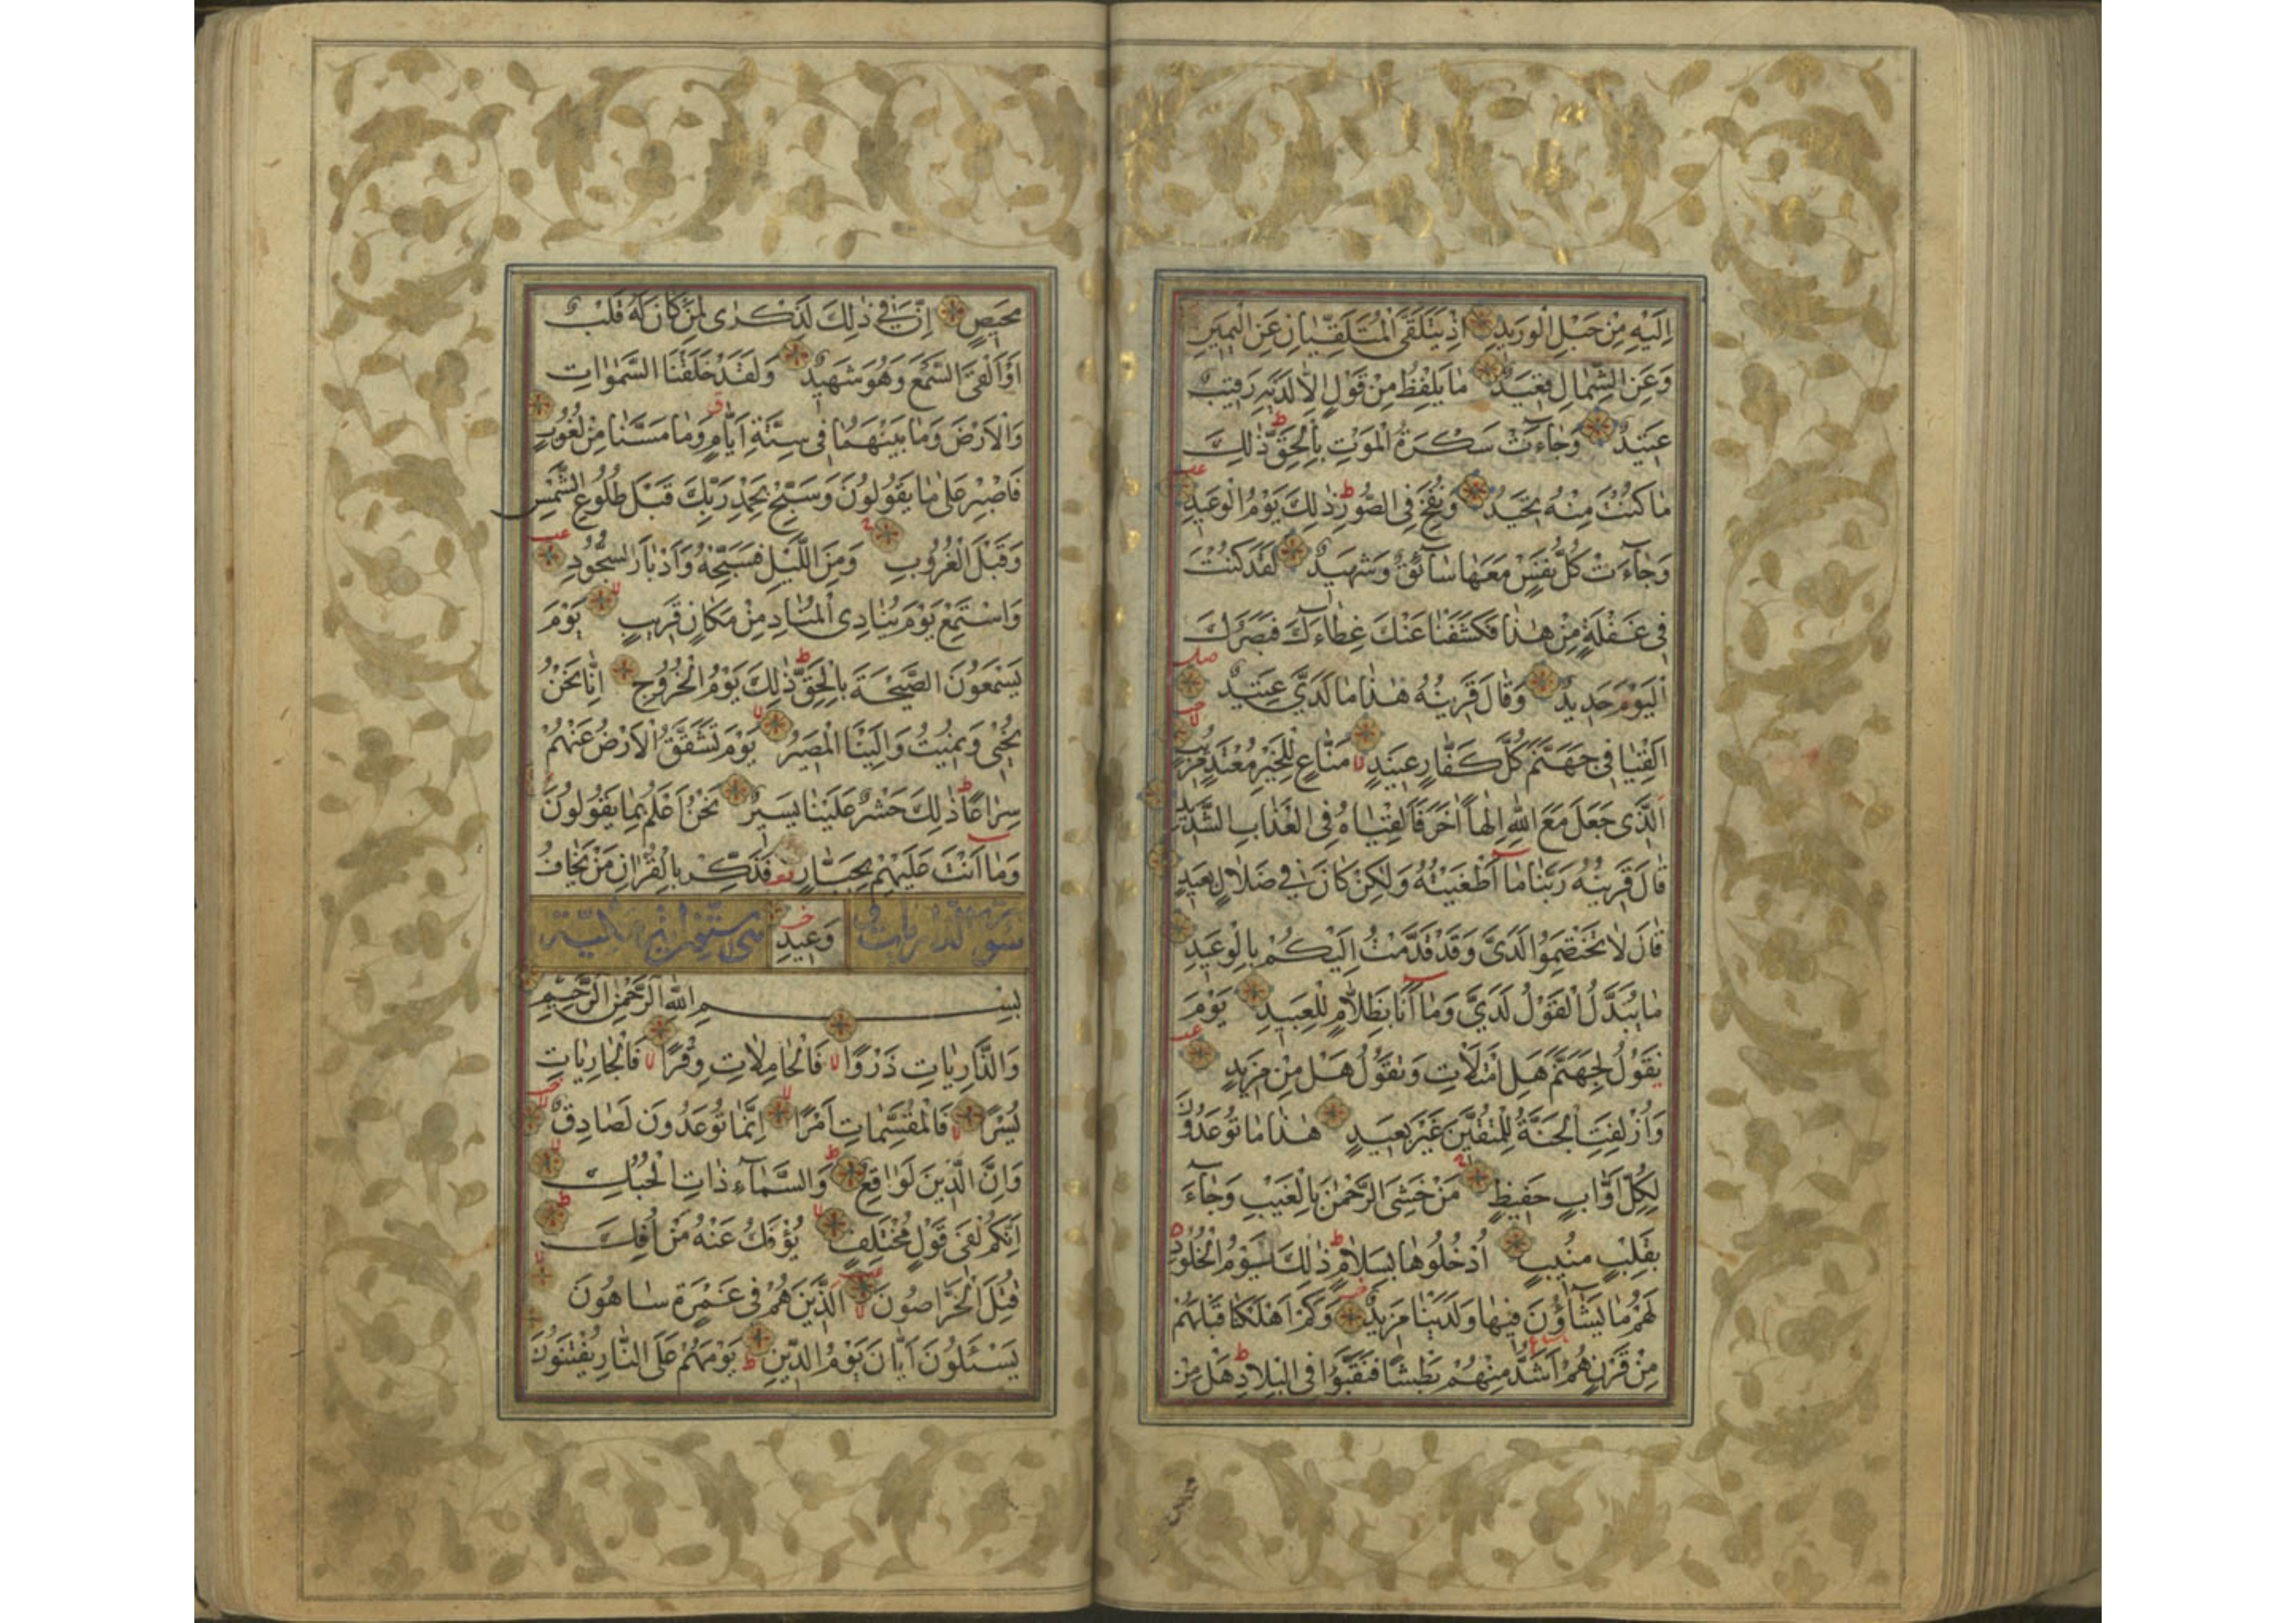 اِلَيْهِ مِنْ حَبْلِ الْوَرِيدِ اِذْ يَتَلَقَّى الْمُتَلَقِّيَانِ عَنِ الْيَمِينِ
وَعَنِ الشِّمَالِ قَعِيدٌ مَا يَلْفِظُ مِنْ قَوْلٍ اِلَّا لَدَيْهِ رَقِيبٌ
عَتِيدٌ وَجَاءَتْ سَكْرَةُ الْمَوْتِ بِالْحَقِّ ط ذٰلِكَ
مَا كُنْتَ مِنْهُ تَحِيدُ وَنُفِخَ فِى الصُّورِ ط ذٰلِكَ يَوْمُ الْوَعِيدِ عب
وَجَاءَتْ كُلُّ نَفْسٍ مَعَهَا سَائِقٌ وَشَهِيدٌ لَقَدْ كُنْتَ
فِى غَفْلَةٍ مِنْ هٰذَا فَكَشَفْنَا عَنْكَ غِطَاءَكَ فَبَصَرُكَ
الْيَوْمَ حَدِيدٌ وَقَالَ قَرِينُهُ هٰذَا مَا لَدَىَّ عَتِيدٌ
اَلْقِيَا فِى جَهَنَّمَ كُلَّ كَفَّارٍ عَنِيدٍ لا مَنَّاعٍ لِلْخَيْرِ مُعْتَدٍ مُرِيبٍ
اَلَّذِى جَعَلَ مَعَ اللّٰهِ اِلٰهًا اٰخَرَ فَاَلْقِيَاهُ فِى الْعَذَابِ الشَّدِيدِ
قَالَ قَرِينُهُ رَبَّنَا مَا اَطْغَيْتُهُ وَلٰكِنْ كَانَ فِى ضَلَالٍ بَعِيدٍ
قَالَ لَا تَخْتَصِمُوا لَدَىَّ وَقَدْ قَدَّمْتُ اِلَيْكُمْ بِالْوَعِيدِ
مَا يُبَدَّلُ الْقَوْلُ لَدَىَّ وَمَا اَنَا بِظَلَّامٍ لِلْعَبِيدِ يَوْمَ
نَقُولُ لِجَهَنَّمَ هَلِ امْتَلَأْتِ وَتَقُولُ هَلْ مِنْ مَزِيدٍ عب
وَاُزْلِفَتِ الْجَنَّةُ لِلْمُتَّقِينَ غَيْرَ بَعِيدٍ هٰذَا مَا تُوعَدُونَ
لِكُلِّ اَوَّابٍ حَفِيظٍ مَنْ خَشِىَ الرَّحْمٰنَ بِالْغَيْبِ وَجَاءَ
بِقَلْبٍ مُنِيبٍ اُدْخُلُوهَا بِسَلَامٍ ط ذٰلِكَ يَوْمُ الْخُلُودِ
لَهُمْ مَا يَشَاؤُنَ فِيهَا وَلَدَيْنَا مَزِيدٌ وَكَمْ اَهْلَكْنَا قَبْلَهُمْ
مِنْ قَرْنٍ هُمْ اَشَدُّ مِنْهُمْ بَطْشًا فَنَقَّبُوا فِى الْبِلَادِ ط هَلْ مِنْ
مَحِيصٍ اِنَّ فِى ذٰلِكَ لَذِكْرٰى لِمَنْ كَانَ لَهُ قَلْبٌ
اَوْ اَلْقَى السَّمْعَ وَهُوَ شَهِيدٌ وَلَقَدْ خَلَقْنَا السَّمٰوَاتِ
وَالْاَرْضَ وَمَا بَيْنَهُمَا فِى سِتَّةِ اَيَّامٍ ق وَمَا مَسَّنَا مِنْ لُغُوبٍ
فَاصْبِرْ عَلٰى مَا يَقُولُونَ وَسَبِّحْ بِحَمْدِ رَبِّكَ قَبْلَ طُلُوعِ الشَّمْسِ
وَقَبْلَ الْغُرُوبِ وَمِنَ اللَّيْلِ فَسَبِّحْهُ وَاَدْبَارَ السُّجُودِ عب
وَاسْتَمِعْ يَوْمَ يُنَادِى الْمُنَادِ مِنْ مَكَانٍ قَرِيبٍ لا يَوْمَ
يَسْمَعُونَ الصَّيْحَةَ بِالْحَقِّ ط ذٰلِكَ يَوْمُ الْخُرُوجِ اِنَّا نَحْنُ
نُحْيِى وَنُمِيتُ وَاِلَيْنَا الْمَصِيرُ لا يَوْمَ تَشَقَّقُ الْاَرْضُ عَنْهُمْ
سِرَاعًا ط ذٰلِكَ حَشْرٌ عَلَيْنَا يَسِيرٌ نَحْنُ اَعْلَمُ بِمَا يَقُولُونَ
وَمَا اَنْتَ عَلَيْهِمْ بِجَبَّارٍ فَذَكِّرْ بِالْقُرْاٰنِ مَنْ يَخَافُ
سورة الذاريات وَعِيدِ
بِسْمِ اللّٰهِ الرَّحْمٰنِ الرَّحِيمِ
وَالذَّارِيَاتِ ذَرْوًا لا فَالْحَامِلَاتِ وِقْرًا لا فَالْجَارِيَاتِ
يُسْرًا لا فَالْمُقَسِّمَاتِ اَمْرًا لا اِنَّمَا تُوعَدُونَ لَصَادِقٌ
وَاِنَّ الدِّينَ لَوَاقِعٌ ط وَالسَّمَاءِ ذَاتِ الْحُبُكِ
اِنَّكُمْ لَفِى قَوْلٍ مُخْتَلِفٍ لا يُؤْفَكُ عَنْهُ مَنْ اُفِكَ ط
قُتِلَ الْخَرَّاصُونَ لا اَلَّذِينَ هُمْ فِى غَمْرَةٍ سَاهُونَ
يَسْئَلُونَ اَيَّانَ يَوْمُ الدِّينِ ط يَوْمَ هُمْ عَلَى النَّارِ يُفْتَنُونَ